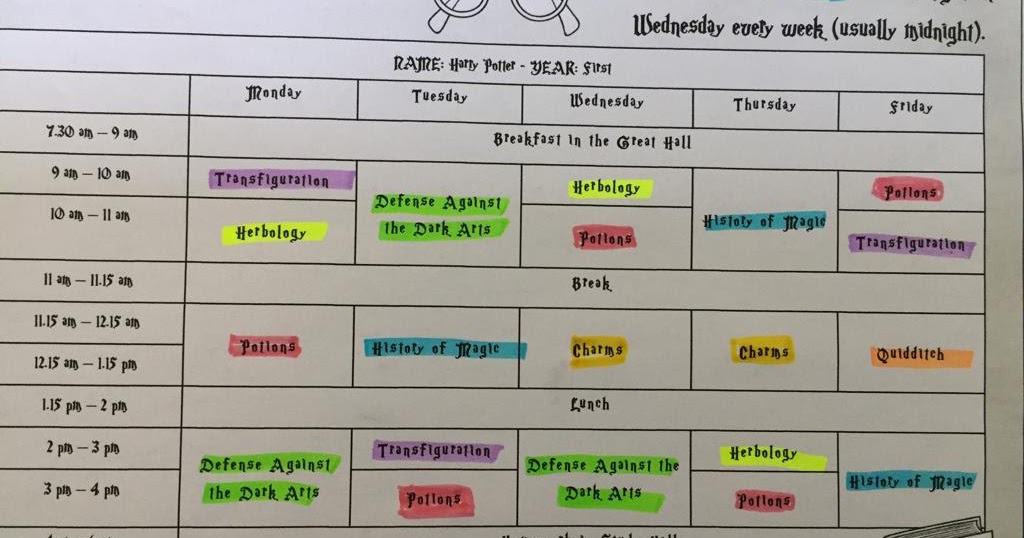 Wednesday every week (usually midnight).
NAME: Harry Potter - YEAR: First
Monday Tuesday Wednesday Thursday Friday
7.30 am – 9 am Breakfast in the Great Hall
9 am – 10 am Transfiguration Herbology Potions
Defense Against the Dark Arts History of Magic
10 am – 11 am Herbology Potions Transfiguration
11 am – 11.15 am Break
11.15 am – 12.15 am
Potions History of Magic Charms Charms Quidditch
12.15 am – 1.15 pm
1.15 pm – 2 pm Lunch
2 pm – 3 pm Transfiguration Herbology
Defense Against the Dark Arts Defense Against the Dark Arts History of Magic
3 pm – 4 pm Potions Potions